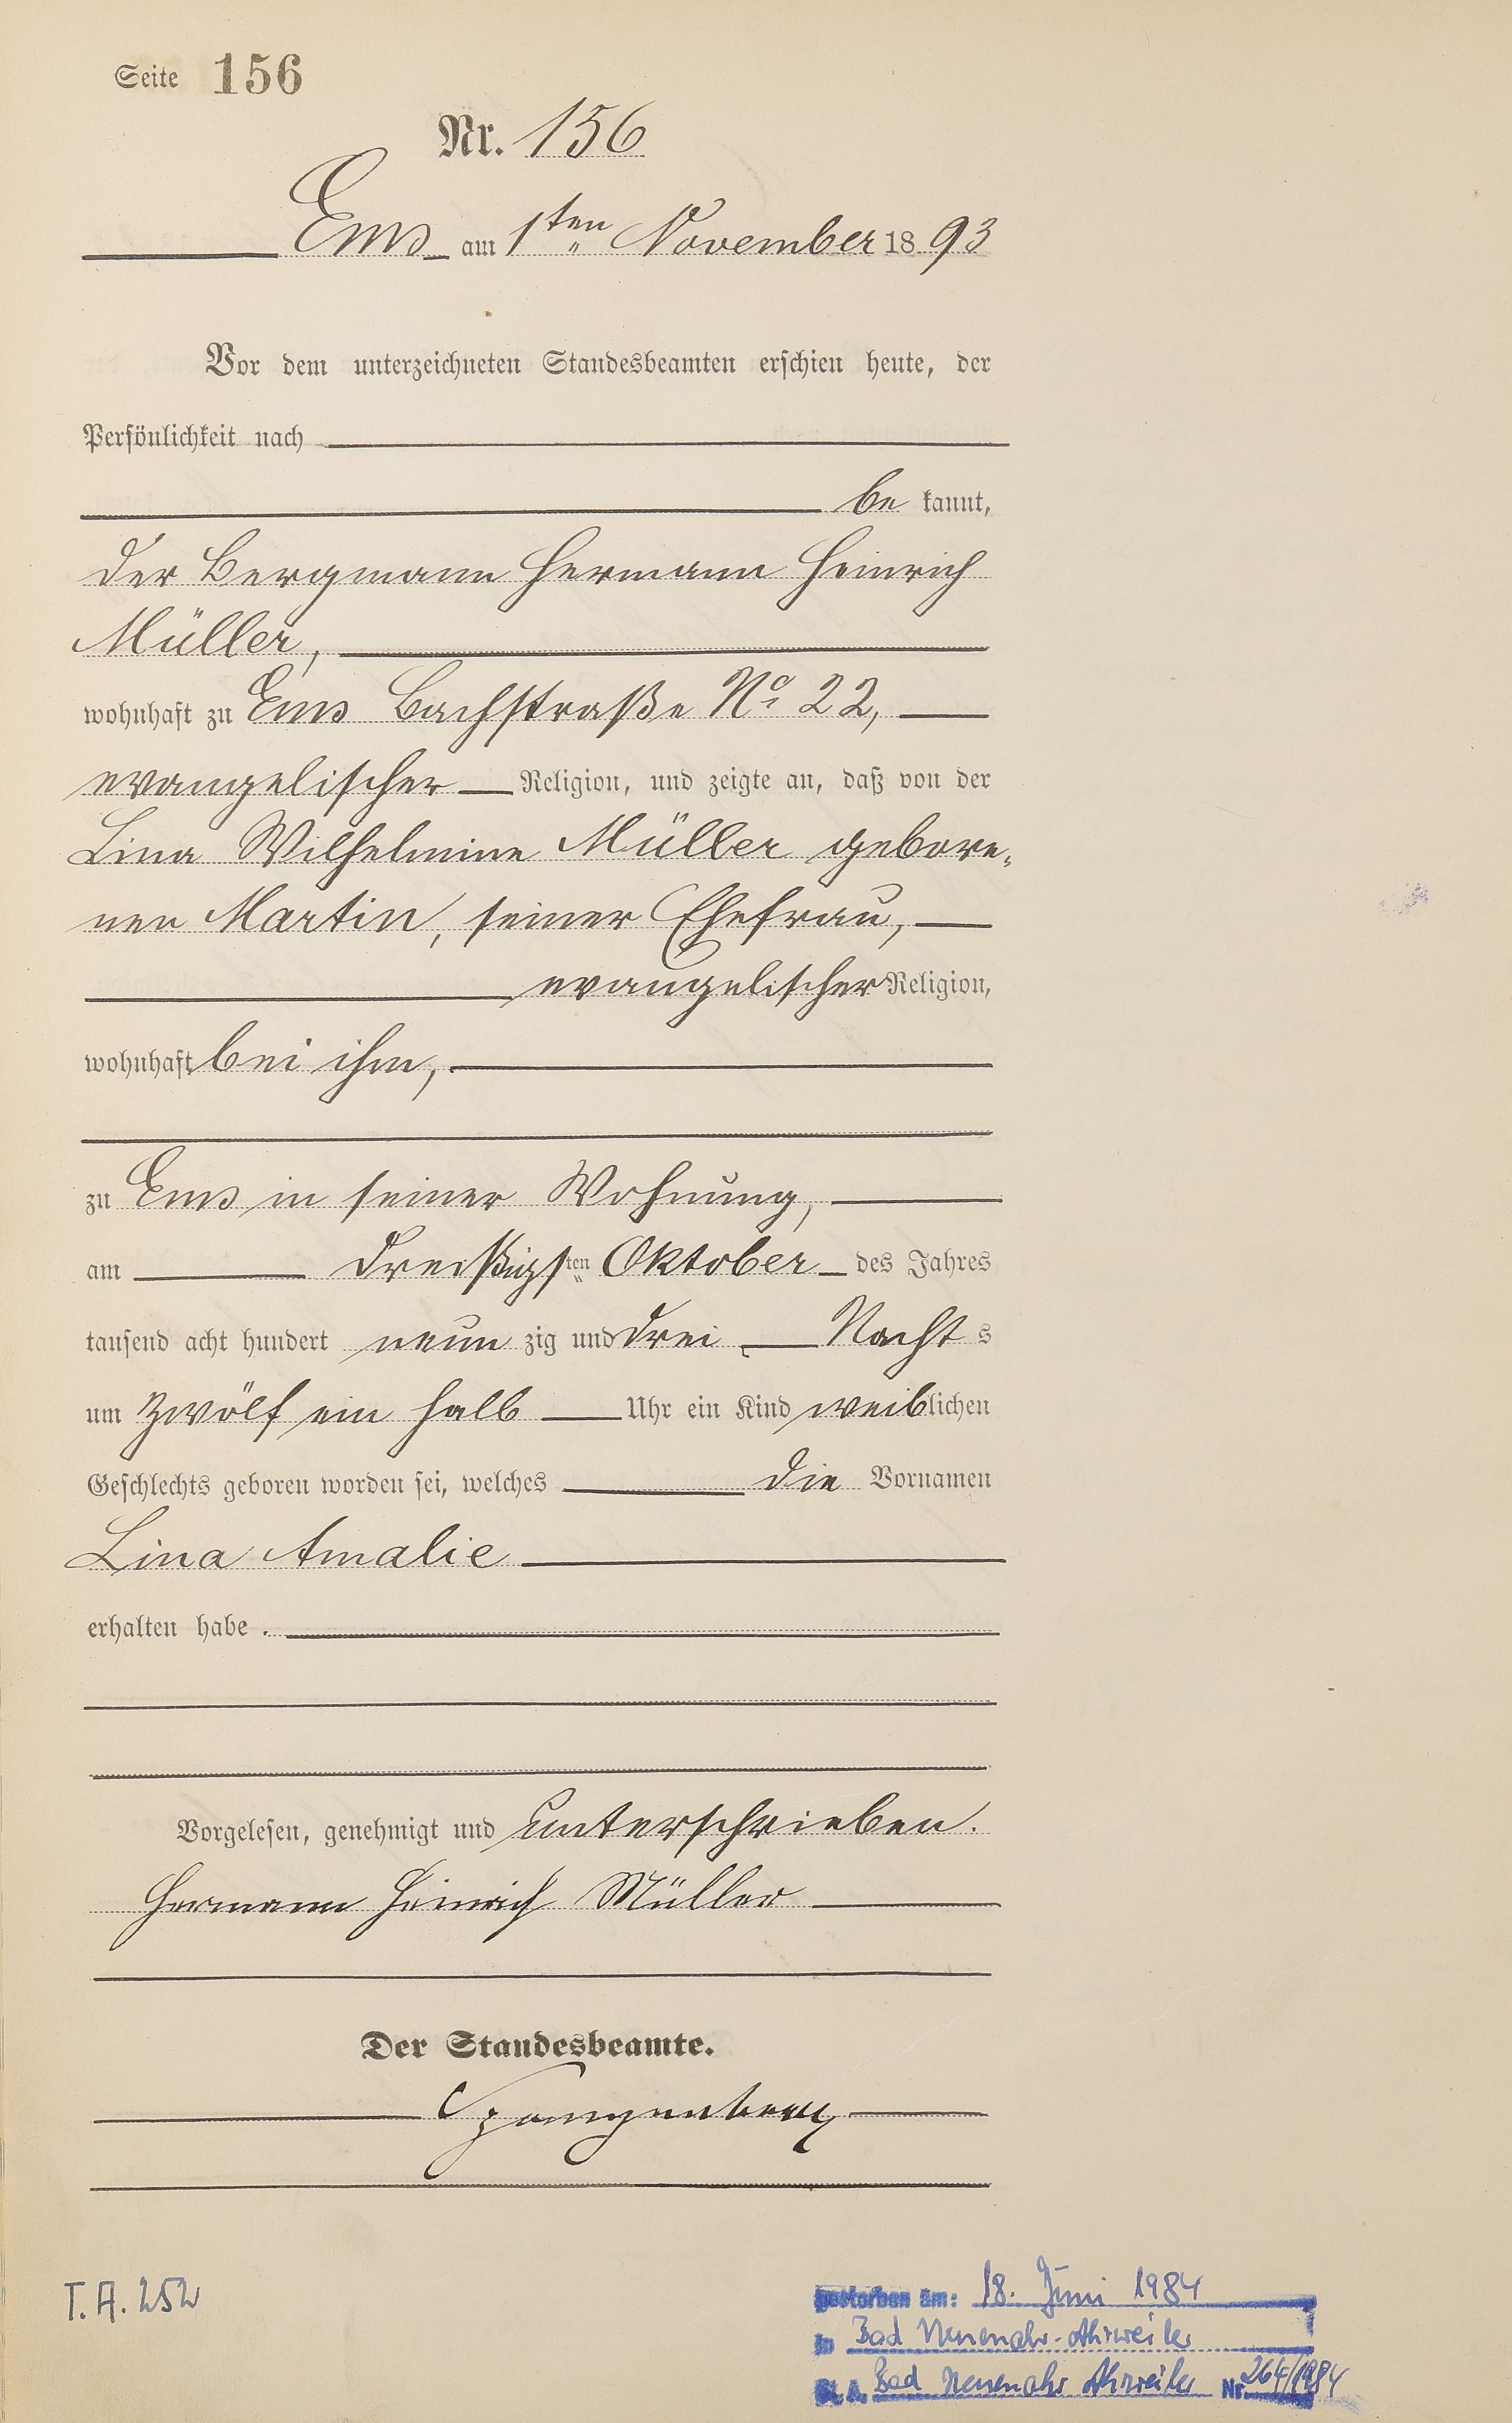 Seite 156
Nr. 156
Ems am 1ten November 1893
Vor dem unterzeichneten Standesbeamten erschien heute, der
Persönlichkeit nach
be kannt,
der Bergmann Hermann Heinrich
Müller,
wohnhaft zu Ems Bachstraße No 22,
evangelischer Religion, und zeigte an, daß von der
Lina Wilhelmine Müller gebore-
nen Martin, seiner Ehefrau,
evangelischer Religion,
wohnhaft bei ihm,
zu Ems in seiner Wohnung,
am dreißigsten Oktober des Jahres
tausend acht hundert neun zig und drei Nacht s
um zwölf ein halb Uhr ein Kind weiblichen
Geschlechts geboren worden sei, welches die Vornamen
Lina Amalie
erhalten habe.
Vorgelesen, genehmigt und unterschrieben.
Hermann Heinrich Müller
Der Standesbeamte.
Spangenberg
T.A. 252
gestorben am: 18. Juni 1984
in Bad Neuenahr-Ahrweiler
St. A. Bad Neuenahr Ahrweiler Nr. 264/1984